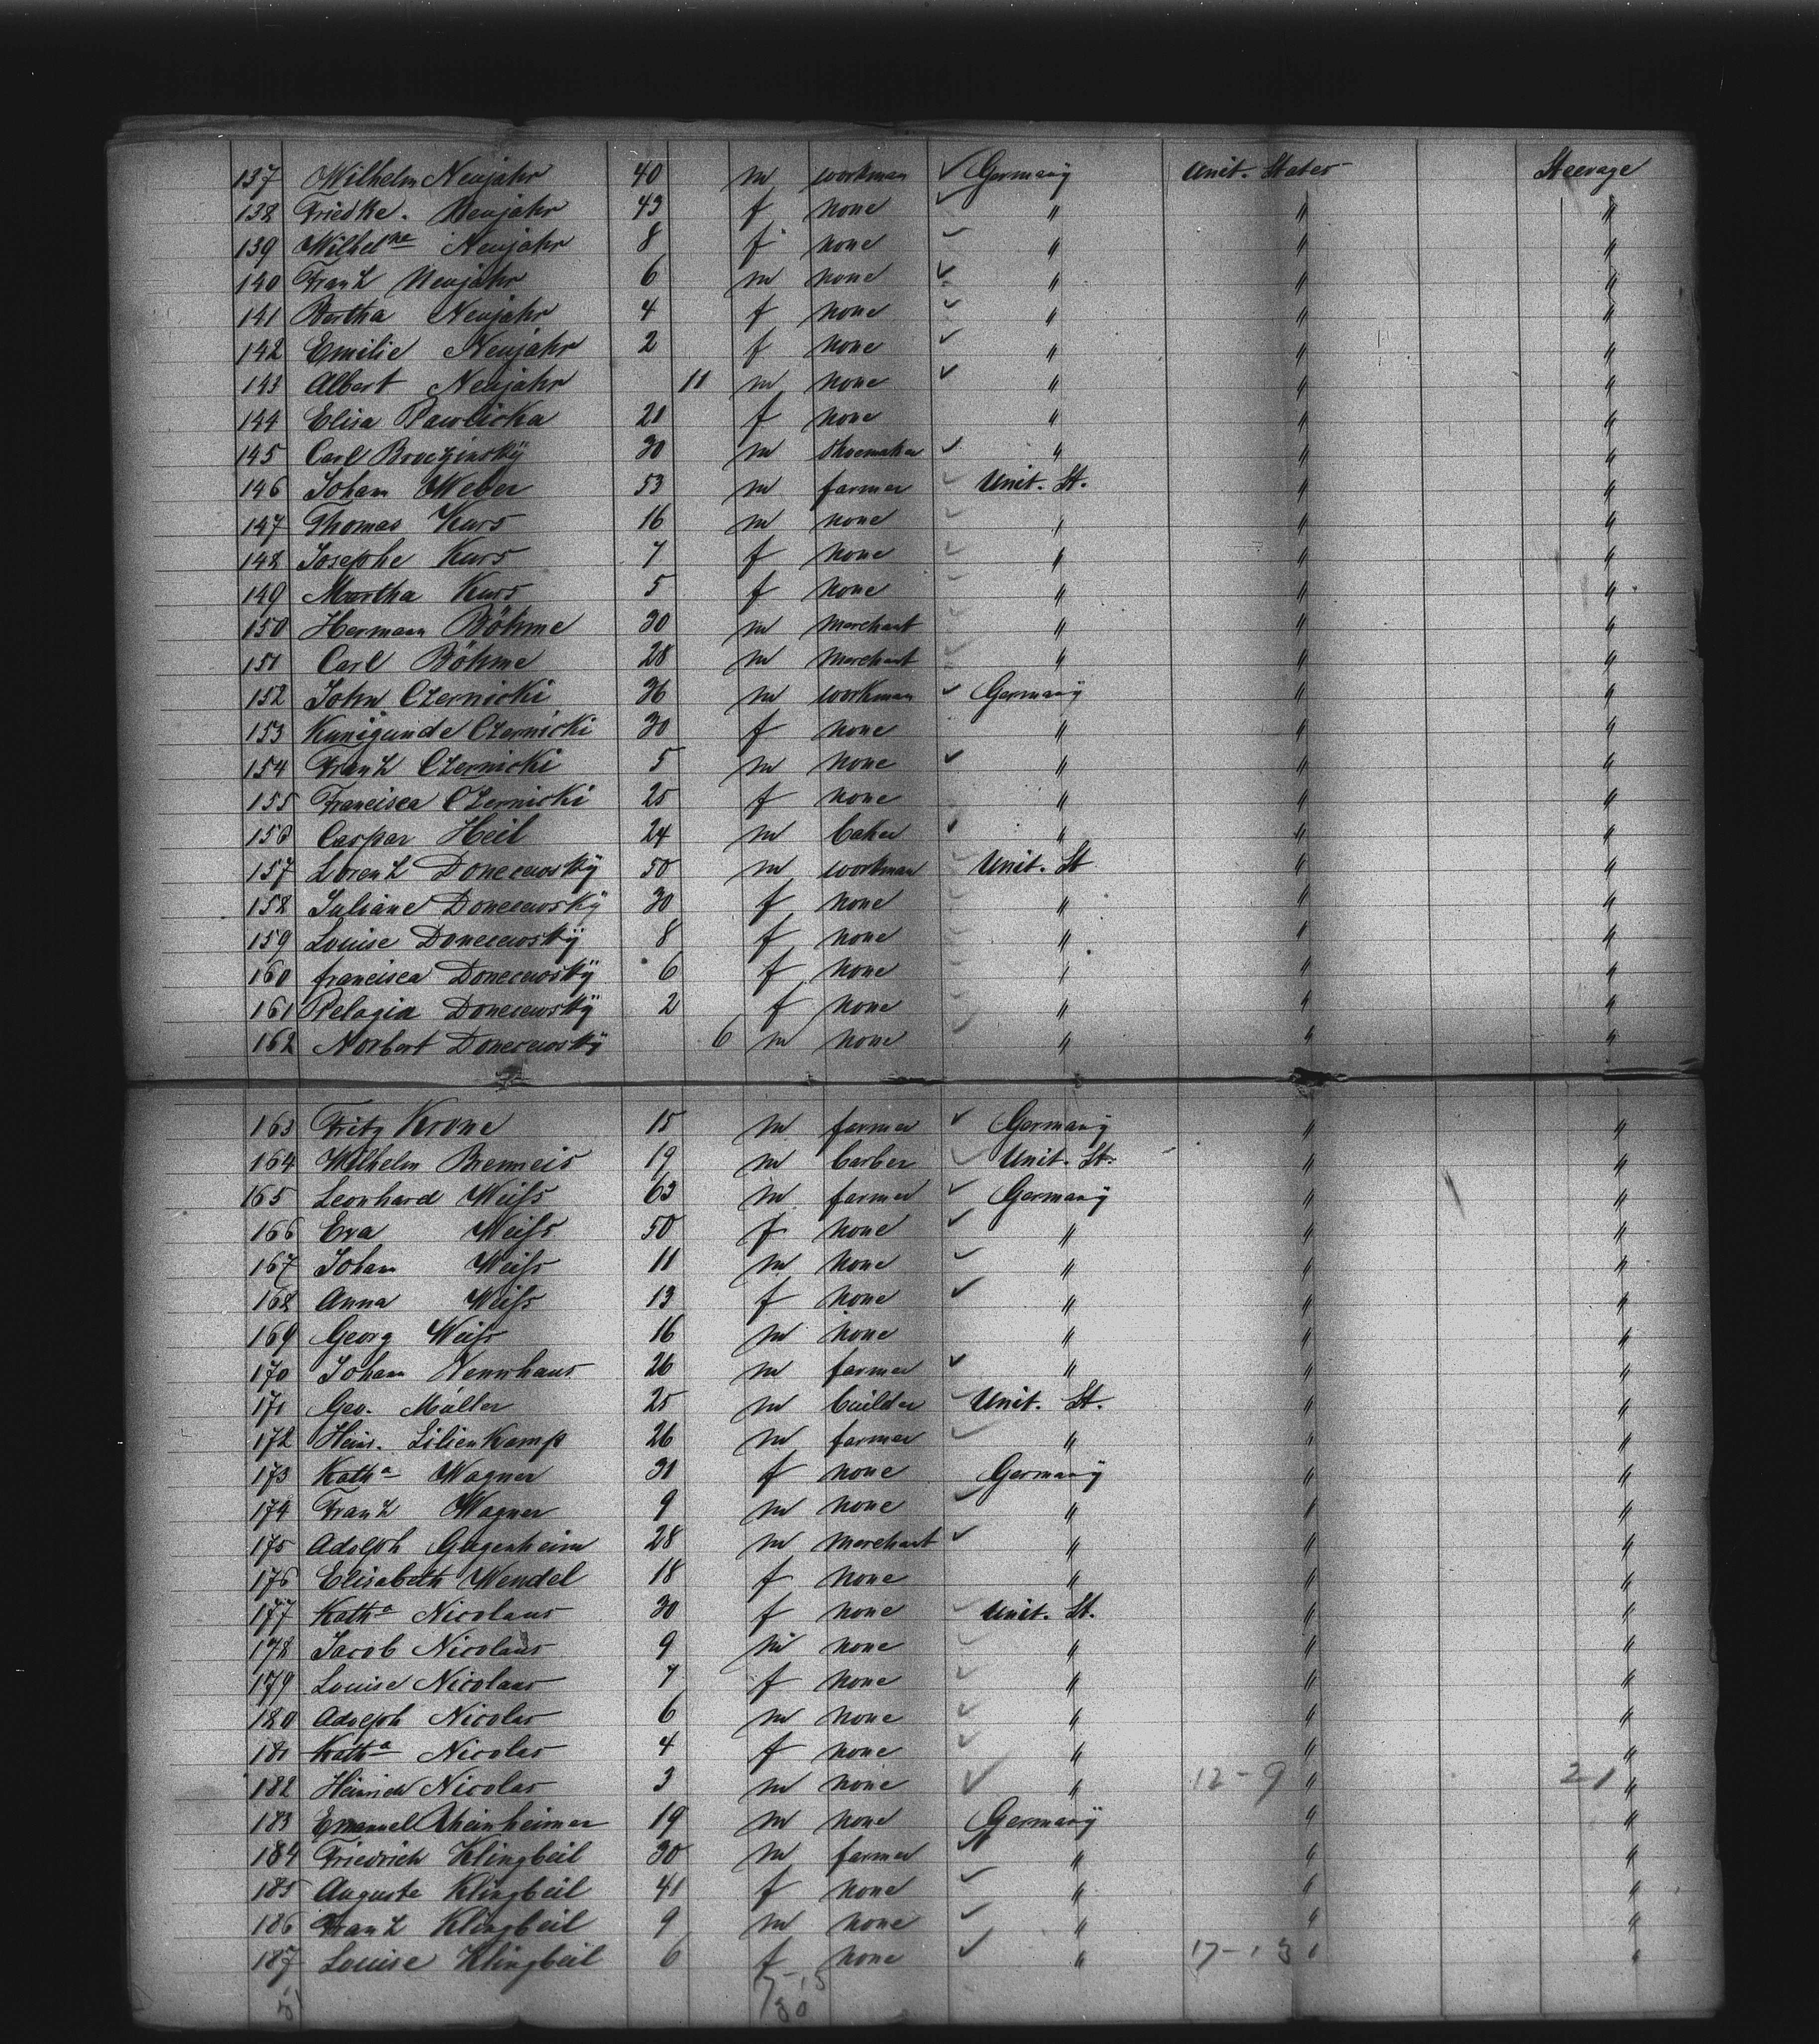 137 Wilhelm Neujahr 40 m workman ✓ Germany Unit. States Steerage
138 Friedke. Neujahr 43 f none ✓ " " "
139 Wilhelne Neujahr 8 f none ✓ " " "
140 Franz Neujahr 6 m none ✓ " " "
141 Bertha Neujahr 4 f none ✓ " " "
142 Emilie Neujahr 2 f none ✓ " " "
143 Albert Neujahr 11 m none ✓ " " "
144 Elisa Pawlicka 21 f none " " "
145 Carl 30 m shoemaker ✓ " " "
146 Johan Weber 53 m farmer ✓ Unit. St. " "
147 Thomas Kurs 16 m none ✓ " " "
148 Josephe Kurs 7 f none ✓ " " "
149 Martha Kurs 5 f none ✓ " " "
150 Hermann Böhme 30 m merchant ✓ " " "
151 Carl Böhme 28 m merchant ✓ " " "
152 John Czernicki 36 m workman ✓ Germany " "
153 Kunigunde Czernicki 30 f none " " "
154 Franz Czernicki 5 m none ✓ " " "
155 Francisca Czernicki 25 f none " " "
156 Caspar Heil 24 m baker ✓ " " "
157 Lorenz Donecewskÿ 50 m workman ✓ Unit. St " "
158 Juliane Donecewskÿ 30 f none ✓ " " "
159 Louise Donecewskÿ 8 f none ✓ " " "
160 francisca Donecewskÿ 6 f none ✓ " " "
161 Pelagia Donecewskÿ 2 f none ✓ " " "
162 Norbert Donecewskÿ 6 m none ✓ " " "
163 Fritz Krone 15 m farmer ✓ Germany " "
164 Wilhelm Brenneis 19 m barber ✓ Unit. St. " "
165 Leonhard Weiſs 63 m farmer ✓ Germany " "
166 Eva Weiſs 50 f none ✓ " " "
167 Johan Weiſs 11 m none ✓ " " "
168 Anna Weiſs 13 f none ✓ " " "
169 Georg Weiſs 16 m none " " "
170 Johann 26 m farmer ✓ " " "
171 Geo. Müller 25 m builder ✓ Unit. St. " "
172 Heinr. Lilienkamp 26 m farmer ✓ " " "
173 Katha Wagner 31 f none Germany " "
174 Franz Wagner 9 m none ✓ " " "
175 Adolph Gugenheim 28 m merchant ✓ " " "
176 Elisabeth Wendel 18 f none " " "
177 Katha Nicolaus 30 f none ✓ Unit. St. " "
178 Jacob Nicolaus 9 m none ✓ " " "
179 Louise Nicolaus 7 f none ✓ " " "
180 Adolph Nicolas 6 m none ✓ " " "
181 Katha Nicolas 4 f none ✓ " " "
182 Heinrich Nicolas 3 m none ✓ " 12-9 " 21 "
183 Emanuel Rheinheimer 19 m none Germany " "
184 Friedrich Klingbeil 30 m farmer ✓ " " "
185 Auguste Klingbeil 41 f none ✓ " " "
186 Franz Klingbeil 9 m none ✓ " " "
187 Louise Klingbeil 6 f none ✓ " 17-13 " "